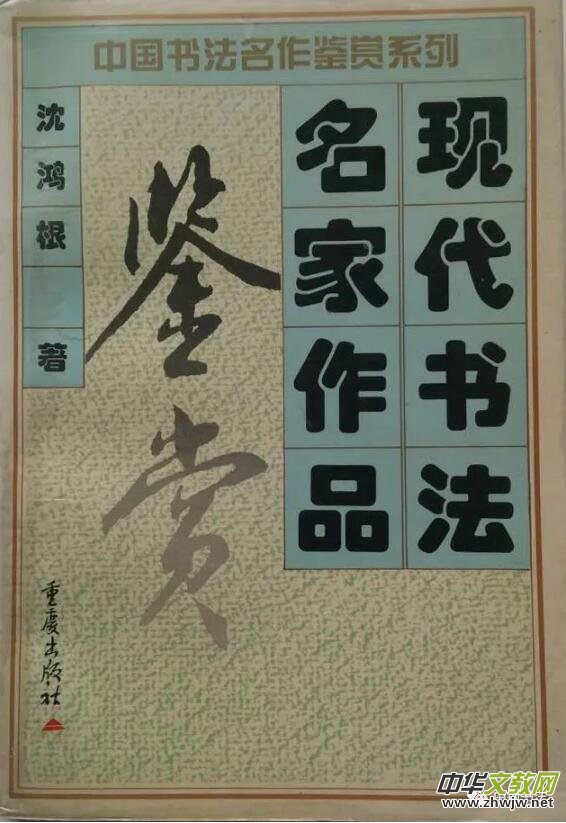 中国书法名作鉴赏系列
现代书法
名家作品
鉴赏
沈鸿根 著
重庆出版社
中华文教网
www.zhwjw.net